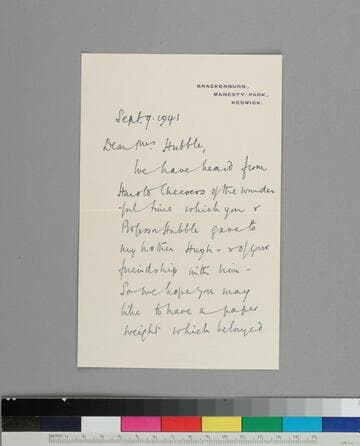 BRACKENBURN,
MANESTY PARK,
KESWICK.
Sept. 9. 1941
Dear Mrs Hubble,
We have heard from
Harold Cheevers of the wonder
-ful time which you &
Professor Hubble gave to
my brother Hugh - & of your
friendship with him -
So we hope you may
like to have a paper
weight which belonged